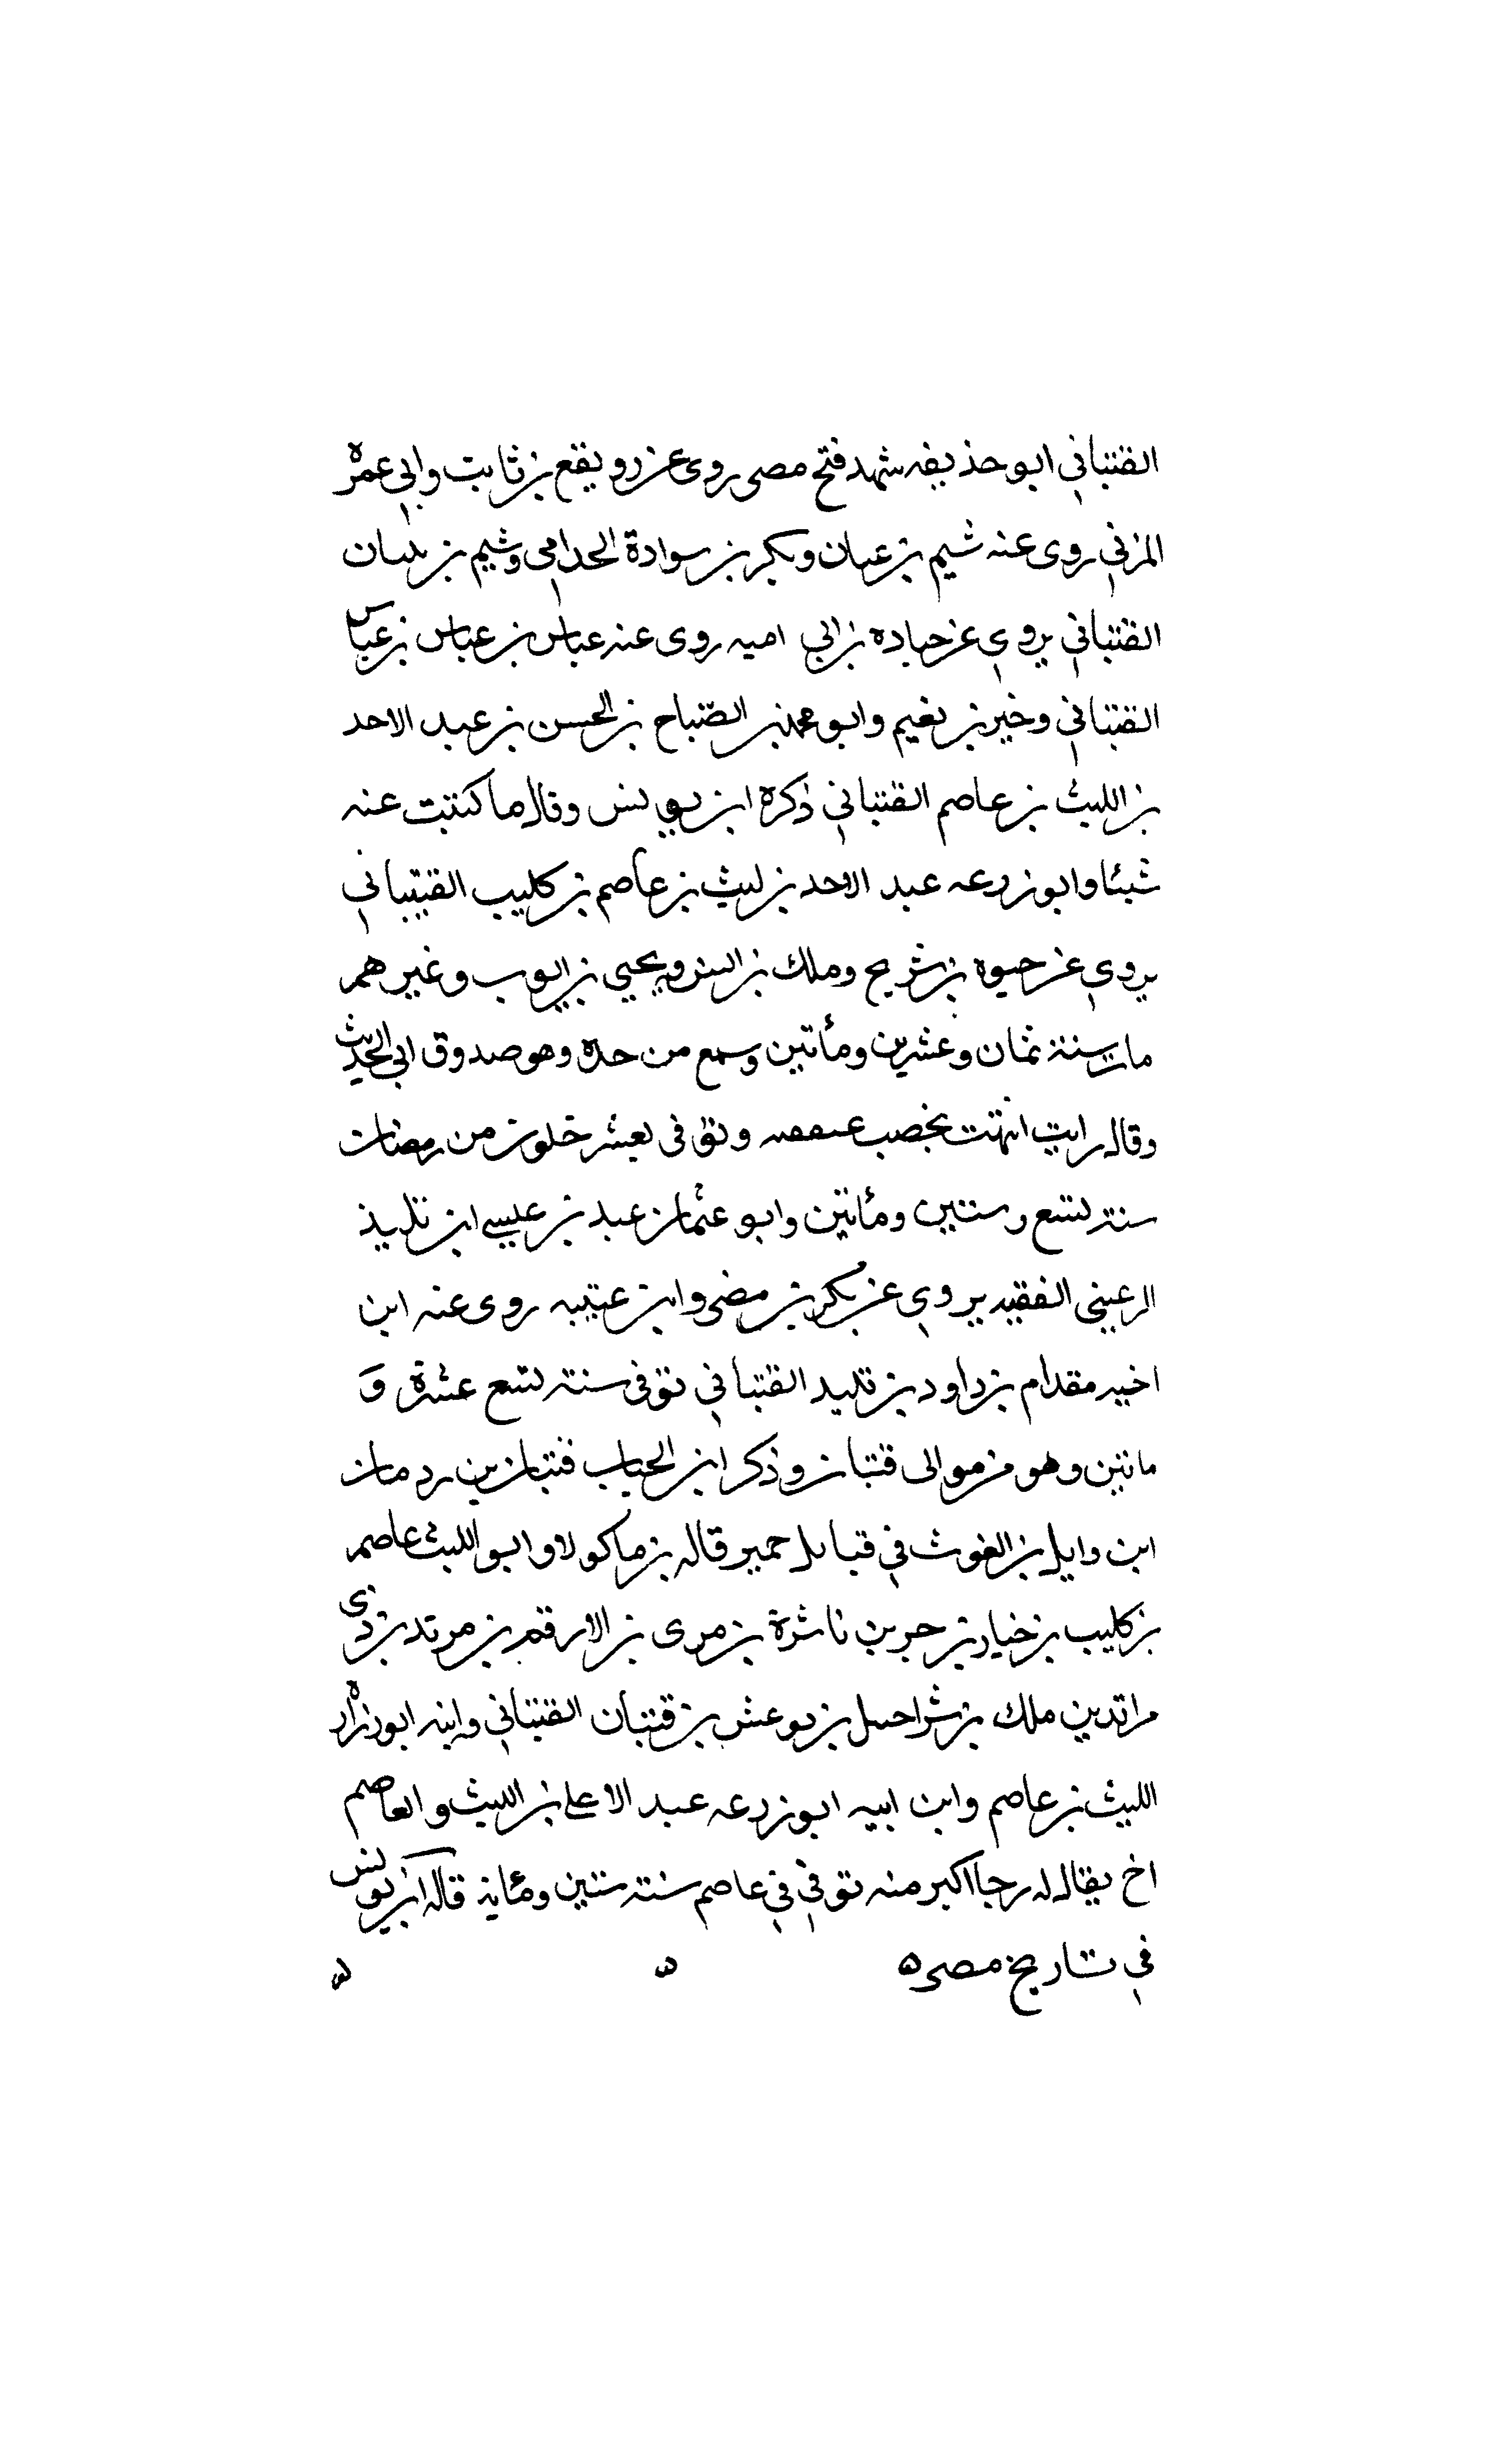 القتباني ابو حذيفه شهد فتح مصر روى عن رويفع بن ثابت وابي عمره
المزني روى عنه شيم بن عبان وبكر بن سوادة الحدامى وشيم بن بيتان
القتباني يروي عن جناده بن ابي اميه روى عنه عياش بن عباس بن عباس
القتباني وخير بن نعيم وابو محمد بن الصباح بن الحسن بن عبد الاحد
بن الليث بن عاصم القتباني ذكره ابن يونس وقال ما كتبت عنه
شيئا وابو زرعه عبد الاحد بن ليث بن عاصم بن كليب القتباني
يروي عن حيوه بن شريح وملك بن انس ويحيي بن ايوب وغيرهم
مات سنة ثمان وعشرين ومأتين وسمع من جده وهو صدوق ابي الحديث
وقال رايت انتهت بخصب وتوفى لعشر خلون من رمضان
سنة تسع وستين ومأتين وابو عثمان عبد بن عيسى ابن تليذ
الرعيني الفقيه يروي عن بكر بن مضى وابن عتيبه روى عنه ابن
اخيه مقدام بن داود بن تليد القتباني توفى سنة تسع عشرة و
ماتين وهو من موالى قتبان وذكر ابن الحباب قتبان بن ردمان
ابن وايل بن الغوث في قبايل حمير قاله بن ماكولا وابو الليث عاصم
بن كليب بن خيار بن جر بن ناشرة بن مرى بن الارقم بن مرتد بن ذى
مراتد بن ملك بن شراحيل بن يوعش بن قتبان القتباني وابنه ابو زراره
الليث بن عاصم وابن ابيه ابو زرعه عبد الاعلى بن الليث والعاصم
اخ يقال له رجا اكبر منه توفي في عاصم سنة ستين ومأية قاله ابن يونس
في تاريخ مصر ه